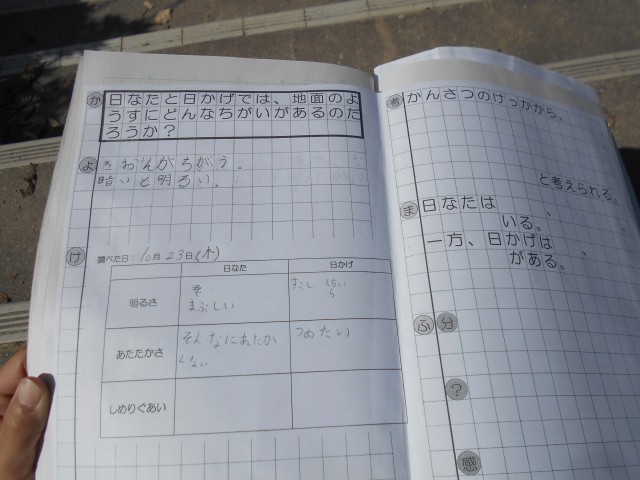 か 日なたと日かげでは、地面のよ
うすにどんなちがいがあるのだ
ろうか？
よ きおんがちがう。
暗いと明るい。
け 調べた日：10月23日(木)
日なた 日かげ
明るさ まぶしい すこし くらい
あたたかさ そんなにあたたか つめたい
くない
しめりぐあい
考 かんさつのけっかから、
と考えられる。
ま 日なたは 、
いる。
一方、日かげは 、
がある。
ふ 分
？
感